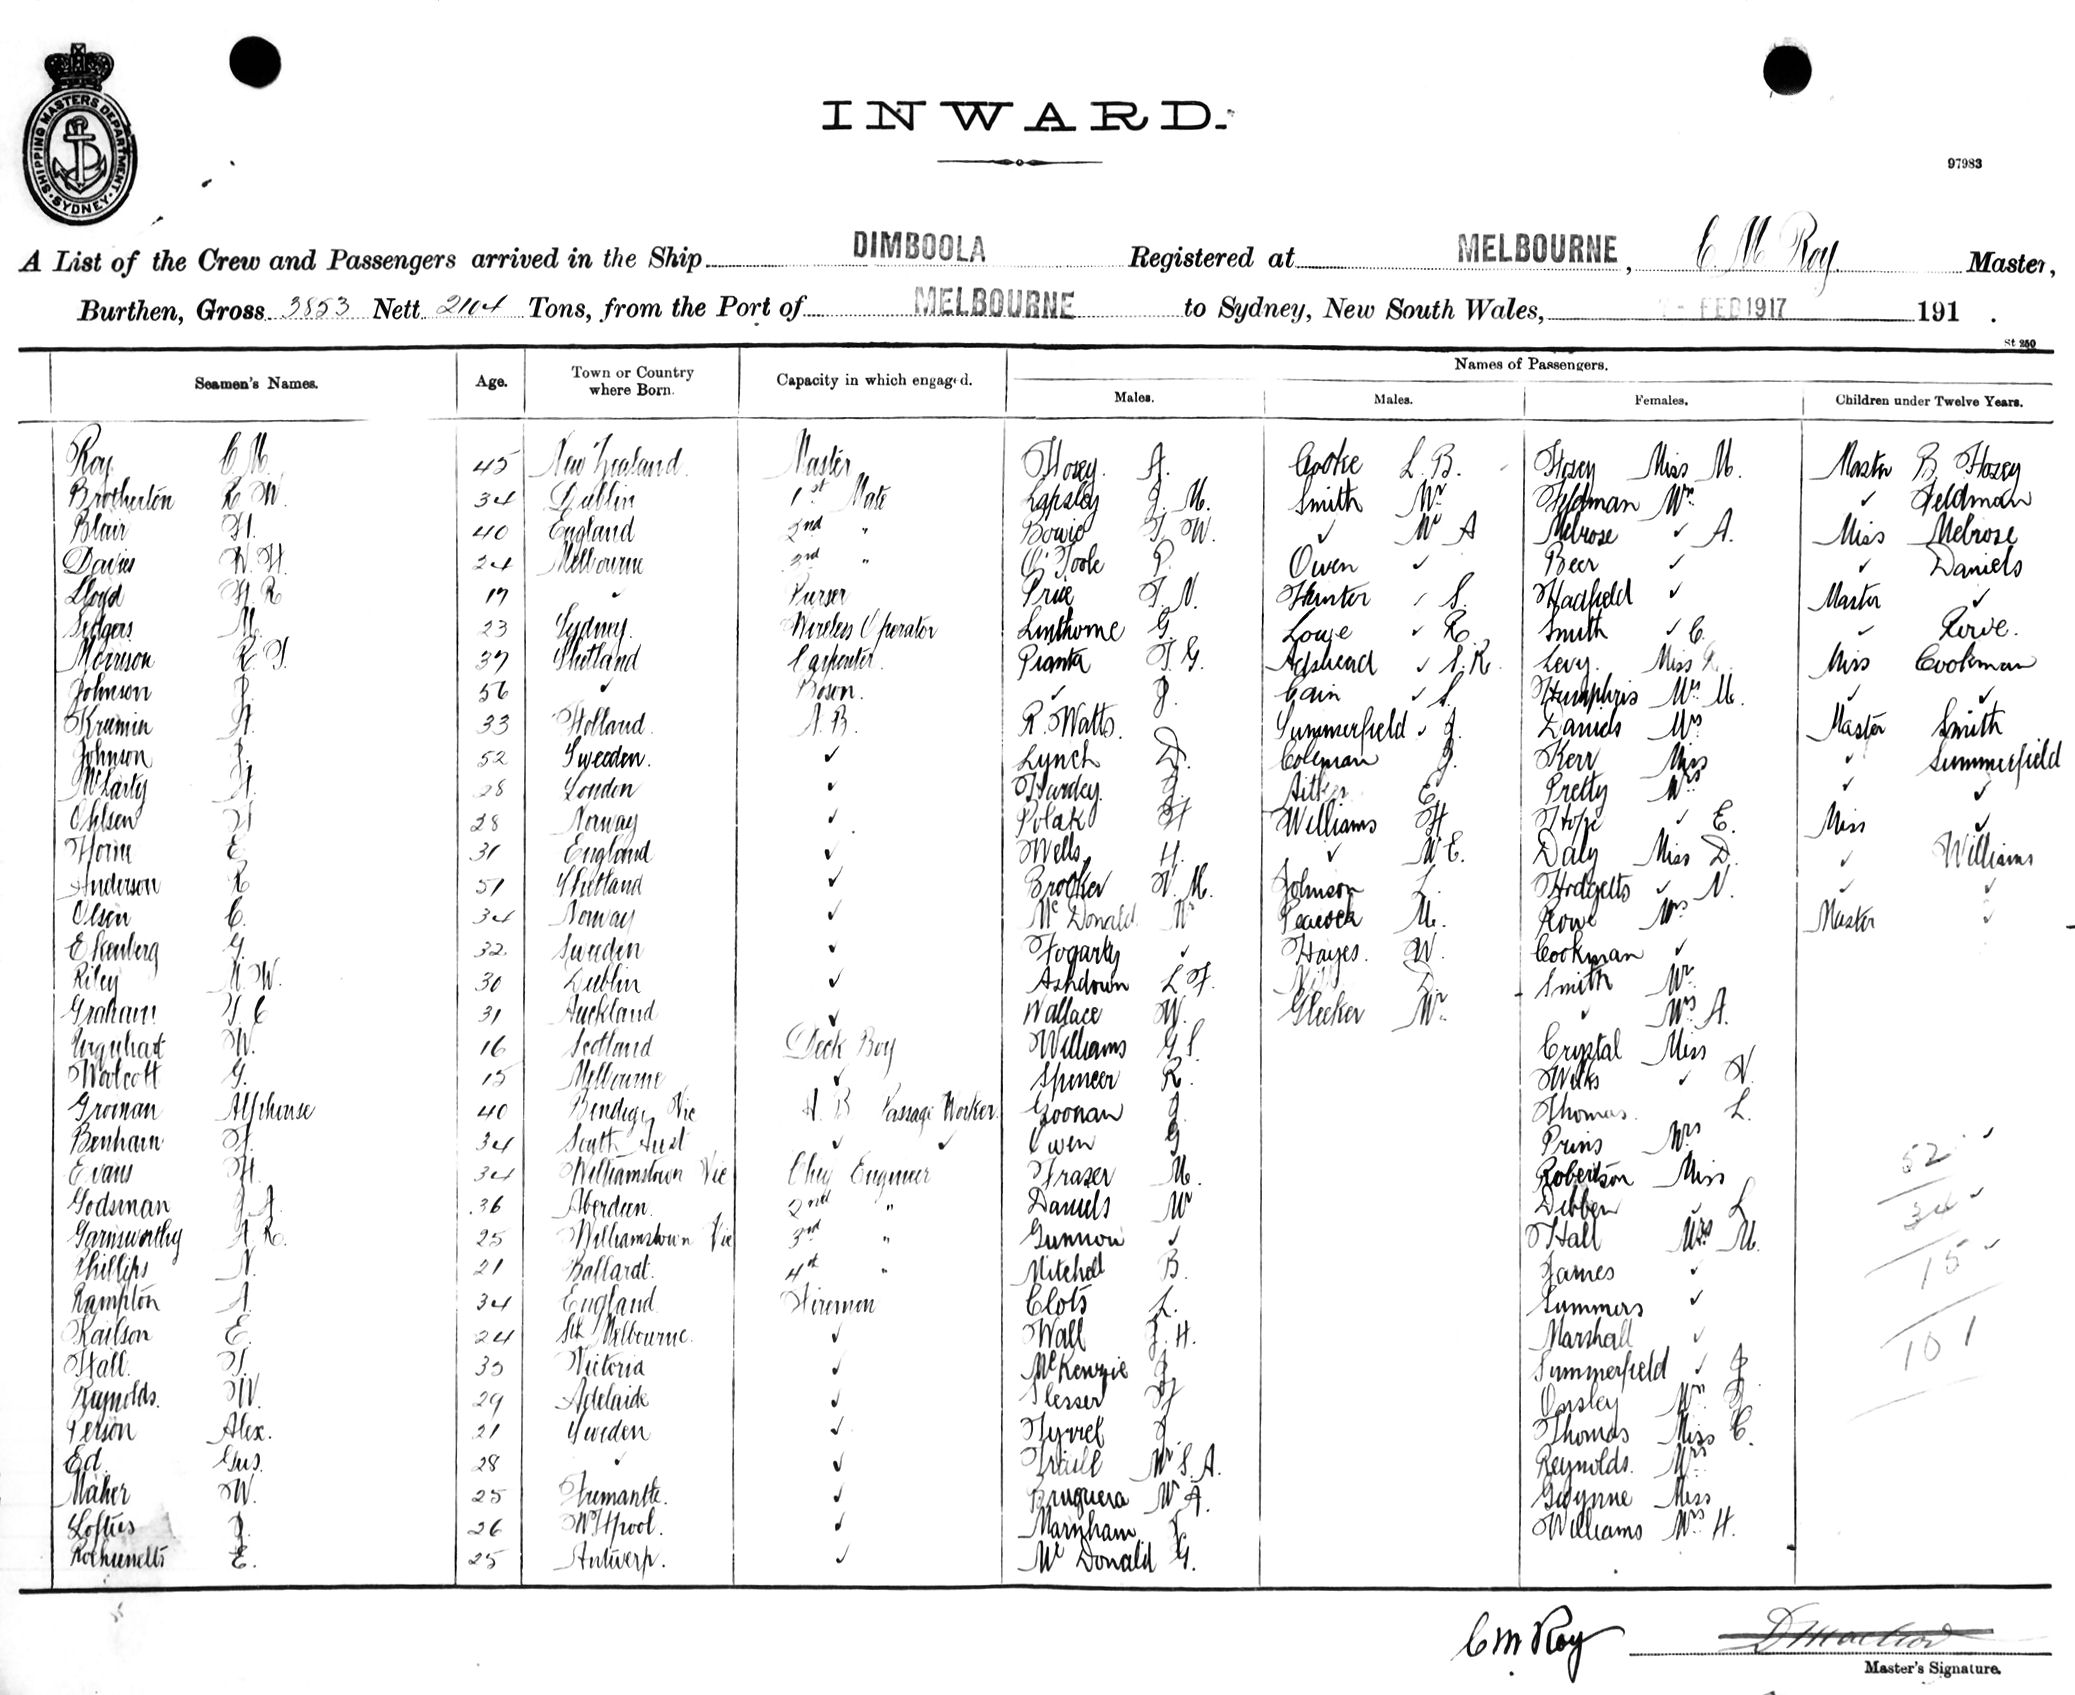 INWARD.
SHIPPING MASTERS DEPARTMENT. SYDNEY
97983
A List of the Crew and Passengers arrived in the Ship DIMBOOLA Registered at MELBOURNE, C M Roy Master,
Burthen, Gross 3853 Nett 2104 Tons, from the Port of MELBOURNE to Sydney, New South Wales, FEB 1917 191 .
St 250
Seamen's Names. Age. Town or Country where Born. Capacity in which engaged. Names of Passengers.
Males. Males. Females. Children under Twelve Years.
Roy C M. 45 New Zealand. Master Hosey. A. Cooke L. B. Hosey Miss M. Master B. Hosey
Brotherton R W. 34 Dublin 1st Mate Lapsley J. M. Smith Mr Feldman Mrs ✓ Feldman
Blair H. 40 England 2nd " Bowie T W. ✓ Mr A Melrose ✓ A. Miss Melrose
Davies W. H. 24 Melbourne 3rd " O'Toole P. Owen ✓ Beer ✓ ✓ Daniels
Lloyd H. R 17 ✓ Purser Price T. N. Hunter ✓ S. Hadfield ✓ Master ✓
M. 23 Sydney. Wireless Operator Linthorne G. Lowe ✓ R. Smith ✓ C. ✓
Morrison R. T. 37 Shetland Carpenter. Pianta T. G. Adshead ✓ S. R. Levy. Miss Miss Cookman
Johnson J. 56 ✓ Boson. ✓ J. Cain ✓ S. Humphris Mrs M. ✓ ✓
Krumin A. 33 Holland. A. B. R. Watts. Summerfield ✓ J. Daniels Mrs Master Smith
Johnson J. 52 Sweeden. ✓ Lynch D. Coleman J. Kerr Miss ✓ Summerfield
McLarty A. 28 London ✓ Hardey. J. E. Pretty Mrs ✓ ✓
Ohlsen H 28 Norway ✓ Polak H Williams H Hope ✓ E. Miss ✓
Horne E. 31 England ✓ Wells H. ✓ W E. Daly Miss D. ✓ Williams
Anderson R 51 Shetland ✓ Brooker W. M. Johnson L. Hodgetts ✓ N. ✓ ✓
Olsen C. 34 Norway ✓ Mc Donald. Mr Peacock M. Rowe Mrs Master ✓
Ekenberg G. 32. Sweden ✓ Fogarty ✓ Hayes. W. Cookman ✓
Riley M. W. 30 Dublin ✓ Ashdown L F. D. Smith Mrs
Graham T. C 31 Auckland ✓ Wallace W. Glecker Mr ✓ Mrs A.
Urquhart W. 16 Scotland Deck Boy Williams G S. Crystal Miss
Walcott G. 15 Melbourne ✓ Spencer R. Wilks ✓ V.
Groman Alphonse 40 Bendigo Vic A. B Passage Worker. Goonan J. Thomas. L.
Benham H. 34 South Aust ✓ ✓ Owen G Prins Mrs
Evans H. 34 Williamstown Vic Chief Engineer Fraser M. Robertson Miss
Godsman J A. 36 Aberdeen. 2nd " Daniels Mr Dibben ✓ L
Garnsworthy A. R. 25 Williamstown Vic 3rd " Gunnow ✓ Hall Mrs M.
Phillips N. 21 Ballarat. 4th " Mitchell B. James ✓
Rampton A. 34 England Firemen Clots L. Summers ✓
Kailson E. 24 Sth Melbourne. ✓ Wall J. H. Marshall ✓
Hall T. 35 Victoria ✓ McKenzie J. Summerfield ✓ J.
Reynolds. W. 29 Adelaide ✓ Slesser H Onsley Mrs J.
Person Alex. 21 Sweden ✓ Tyrrel J. Thomas Miss C.
Ed Gus. 28 ✓ ✓ Traill Mr S. A. Reynolds. Mrs
Maher W. 25 Fremantle. ✓ Bruguera Mr A. Gwynne Miss
Lofties J. 26 W Hpool. ✓ Marnham J. Williams Mrs H.
E. 25 Antwerp. ✓ Mc Donald G.
52 ✓
34 ✓
15 ✓
101
C M Roy
Master's Signature.